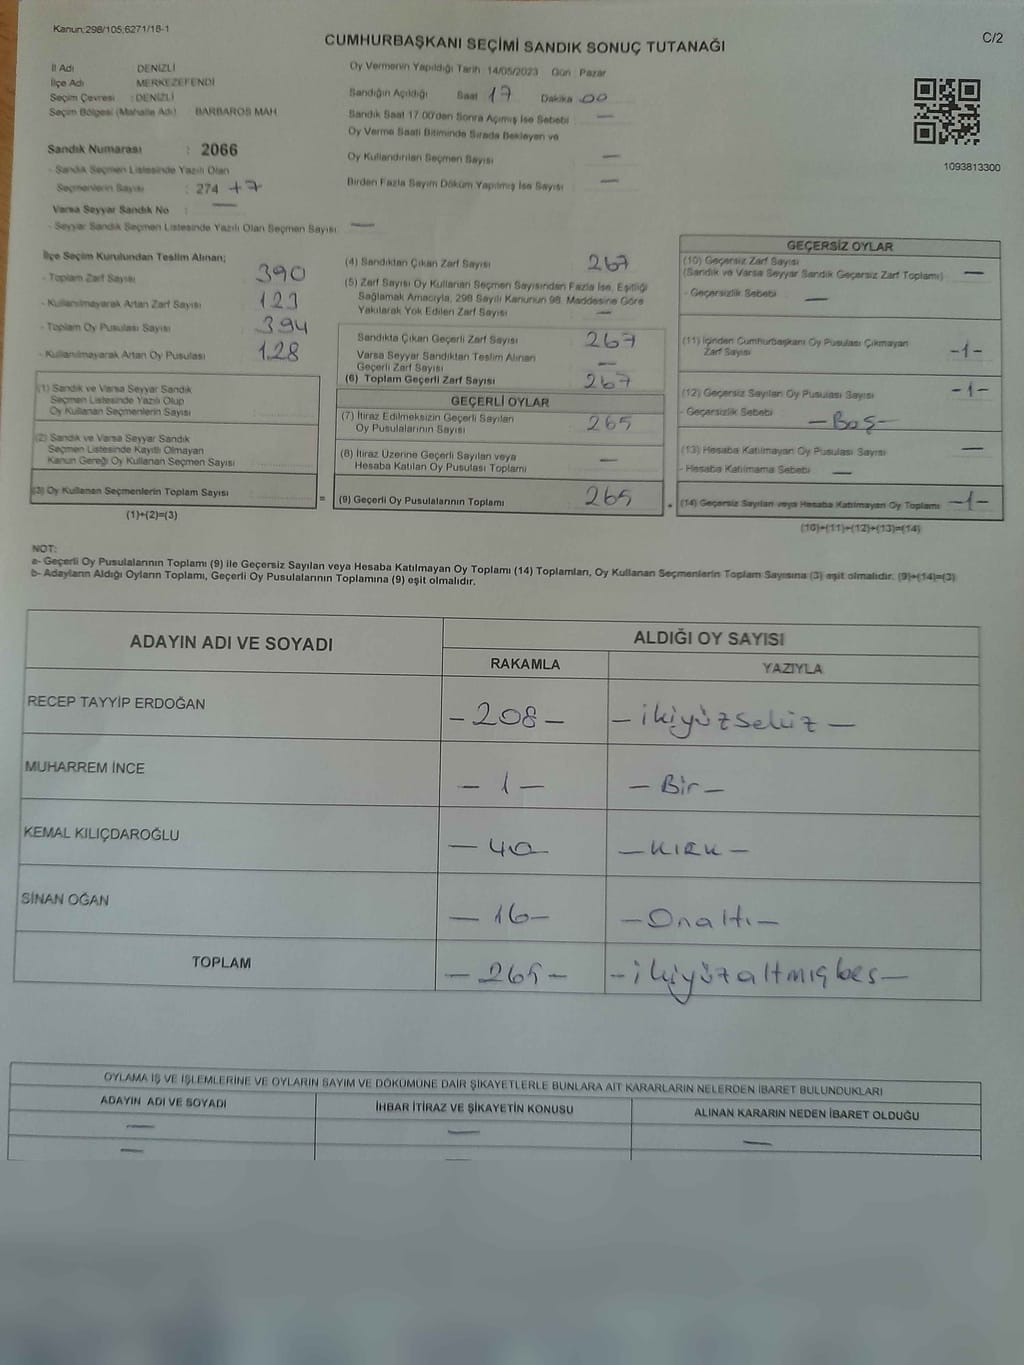 Kanun;298/105;6271/18-1
C/2
CUMHURBAŞKANI SEÇİMİ SANDIK SONUÇ TUTANAĞI
İl Adı : DENİZLİ
İlçe Adı MERKEZEFENDİ
Seçim Çevresi : DENİZLİ
Seçim Bölgesi (Mahalle Adı) BARBAROS MAH
Sandık Numarası : 2066
- Sandık Seçmen Listesinde Yazılı Olan
Seçmenlerin Sayısı : 274 +7
Varsa Seyyar Sandık No : —
- Seyyar Sandık Seçmen Listesinde Yazılı Olan Seçmen Sayısı —
Oy Vermenin Yapıldığı Tarih : 14/05/2023 Gün : Pazar
Sandığın Açıldığı Saat 17 Dakika 00
Sandık Saat 17.00'den Sonra Açımış İse Sebebi : —
Oy Verme Saati Bitiminde Sırada Bekleyen ve
Oy Kullandırılan Seçmen Sayısı —
Birden Fazla Sayım Döküm Yapılmış İse Sayısı : —
1093813300
İlçe Seçim Kurulundan Teslim Alınan;
- Toplam Zarf Sayısı 390
- Kullanılmayarak Artan Zarf Sayısı 123
- Toplam Oy Pusulası Sayısı 394
- Kullanılmayarak Artan Oy Pusulası 128
(1) Sandık ve Varsa Seyyar Sandık
Seçmen Listesinde Yazılı Olup
Oy Kullanan Seçmenlerin Sayısı
(2) Sandık ve Varsa Seyyar Sandık
Seçmen Listesinde Kayıtlı Olmayan
Kanun Gereği Oy Kullanan Seçmen Sayısı
(3) Oy Kullanan Seçmenlerin Toplam Sayısı
=
(1)+(2)=(3)
(4) Sandıktan Çıkan Zarf Sayısı 267
(5) Zarf Sayısı Oy Kullanan Seçmen Sayısından Fazla İse, Eşitliği
Sağlamak Amacıyla, 298 Sayılı Kanunun 98. Maddesine Göre
Yakılarak Yok Edilen Zarf Sayısı —
Sandıkta Çıkan Geçerli Zarf Sayısı 267
Varsa Seyyar Sandıktan Teslim Alınan
Geçerli Zarf Sayısı —
(6) Toplam Geçerli Zarf Sayısı 267
GEÇERLİ OYLAR
(7) İtiraz Edilmeksizin Geçerli Sayılan
Oy Pusulalarının Sayısı 265
(8) İtiraz Üzerine Geçerli Sayılan veya
Hesaba Katılan Oy Pusulası Toplamı —
(9) Geçerli Oy Pusulalarının Toplamı 265
GEÇERSİZ OYLAR
(10) Geçersiz Zarf Sayısı
(Sandık ve Varsa Seyyar Sandık Geçersiz Zarf Toplamı) —
- Geçersizlik Sebebi —
(11) İçinden Cumhurbaşkanı Oy Pusulası Çıkmayan
Zarf Sayısı -1-
(12) Geçersiz Sayılan Oy Pusulası Sayısı -1-
- Geçersizlik Sebebi —Boş—
(13) Hesaba Katılmayan Oy Pusulası Sayısı —
- Hesaba Katılmama Sebebi —
(14) Geçersiz Sayılan veya Hesaba Katılmayan Oy Toplamı —1—
(10)+(11)+(12)+(13)=(14)
NOT:
a- Geçerli Oy Pusulalarının Toplamı (9) ile Geçersiz Sayılan veya Hesaba Katılmayan Oy Toplamı (14) Toplamları, Oy Kullanan Seçmenlerin Toplam Sayısına (3) eşit olmalıdır. (9)+(14)=(3)
b- Adayların Aldığı Oyların Toplamı, Geçerli Oy Pusulalarının Toplamına (9) eşit olmalıdır.
ADAYIN ADI VE SOYADI
ALDIĞI OY SAYISI
RAKAMLA YAZIYLA
RECEP TAYYİP ERDOĞAN —208— —ikiyüzsekiz—
MUHARREM İNCE —1— —Bir—
KEMAL KILIÇDAROĞLU —40— —KIRK—
SİNAN OĞAN —16— —Onaltı—
TOPLAM —265— —ikiyüzaltmışbeş—
OYLAMA İŞ VE İŞLEMLERİNE VE OYLARIN SAYIM VE DÖKÜMÜNE DAİR ŞİKAYETLERLE BUNLARA AİT KARARLARIN NELERDEN İBARET BULUNDUKLARI
ADAYIN ADI VE SOYADI İHBAR İTİRAZ VE ŞİKAYETİN KONUSU ALINAN KARARIN NEDEN İBARET OLDUĞU
— — —
—